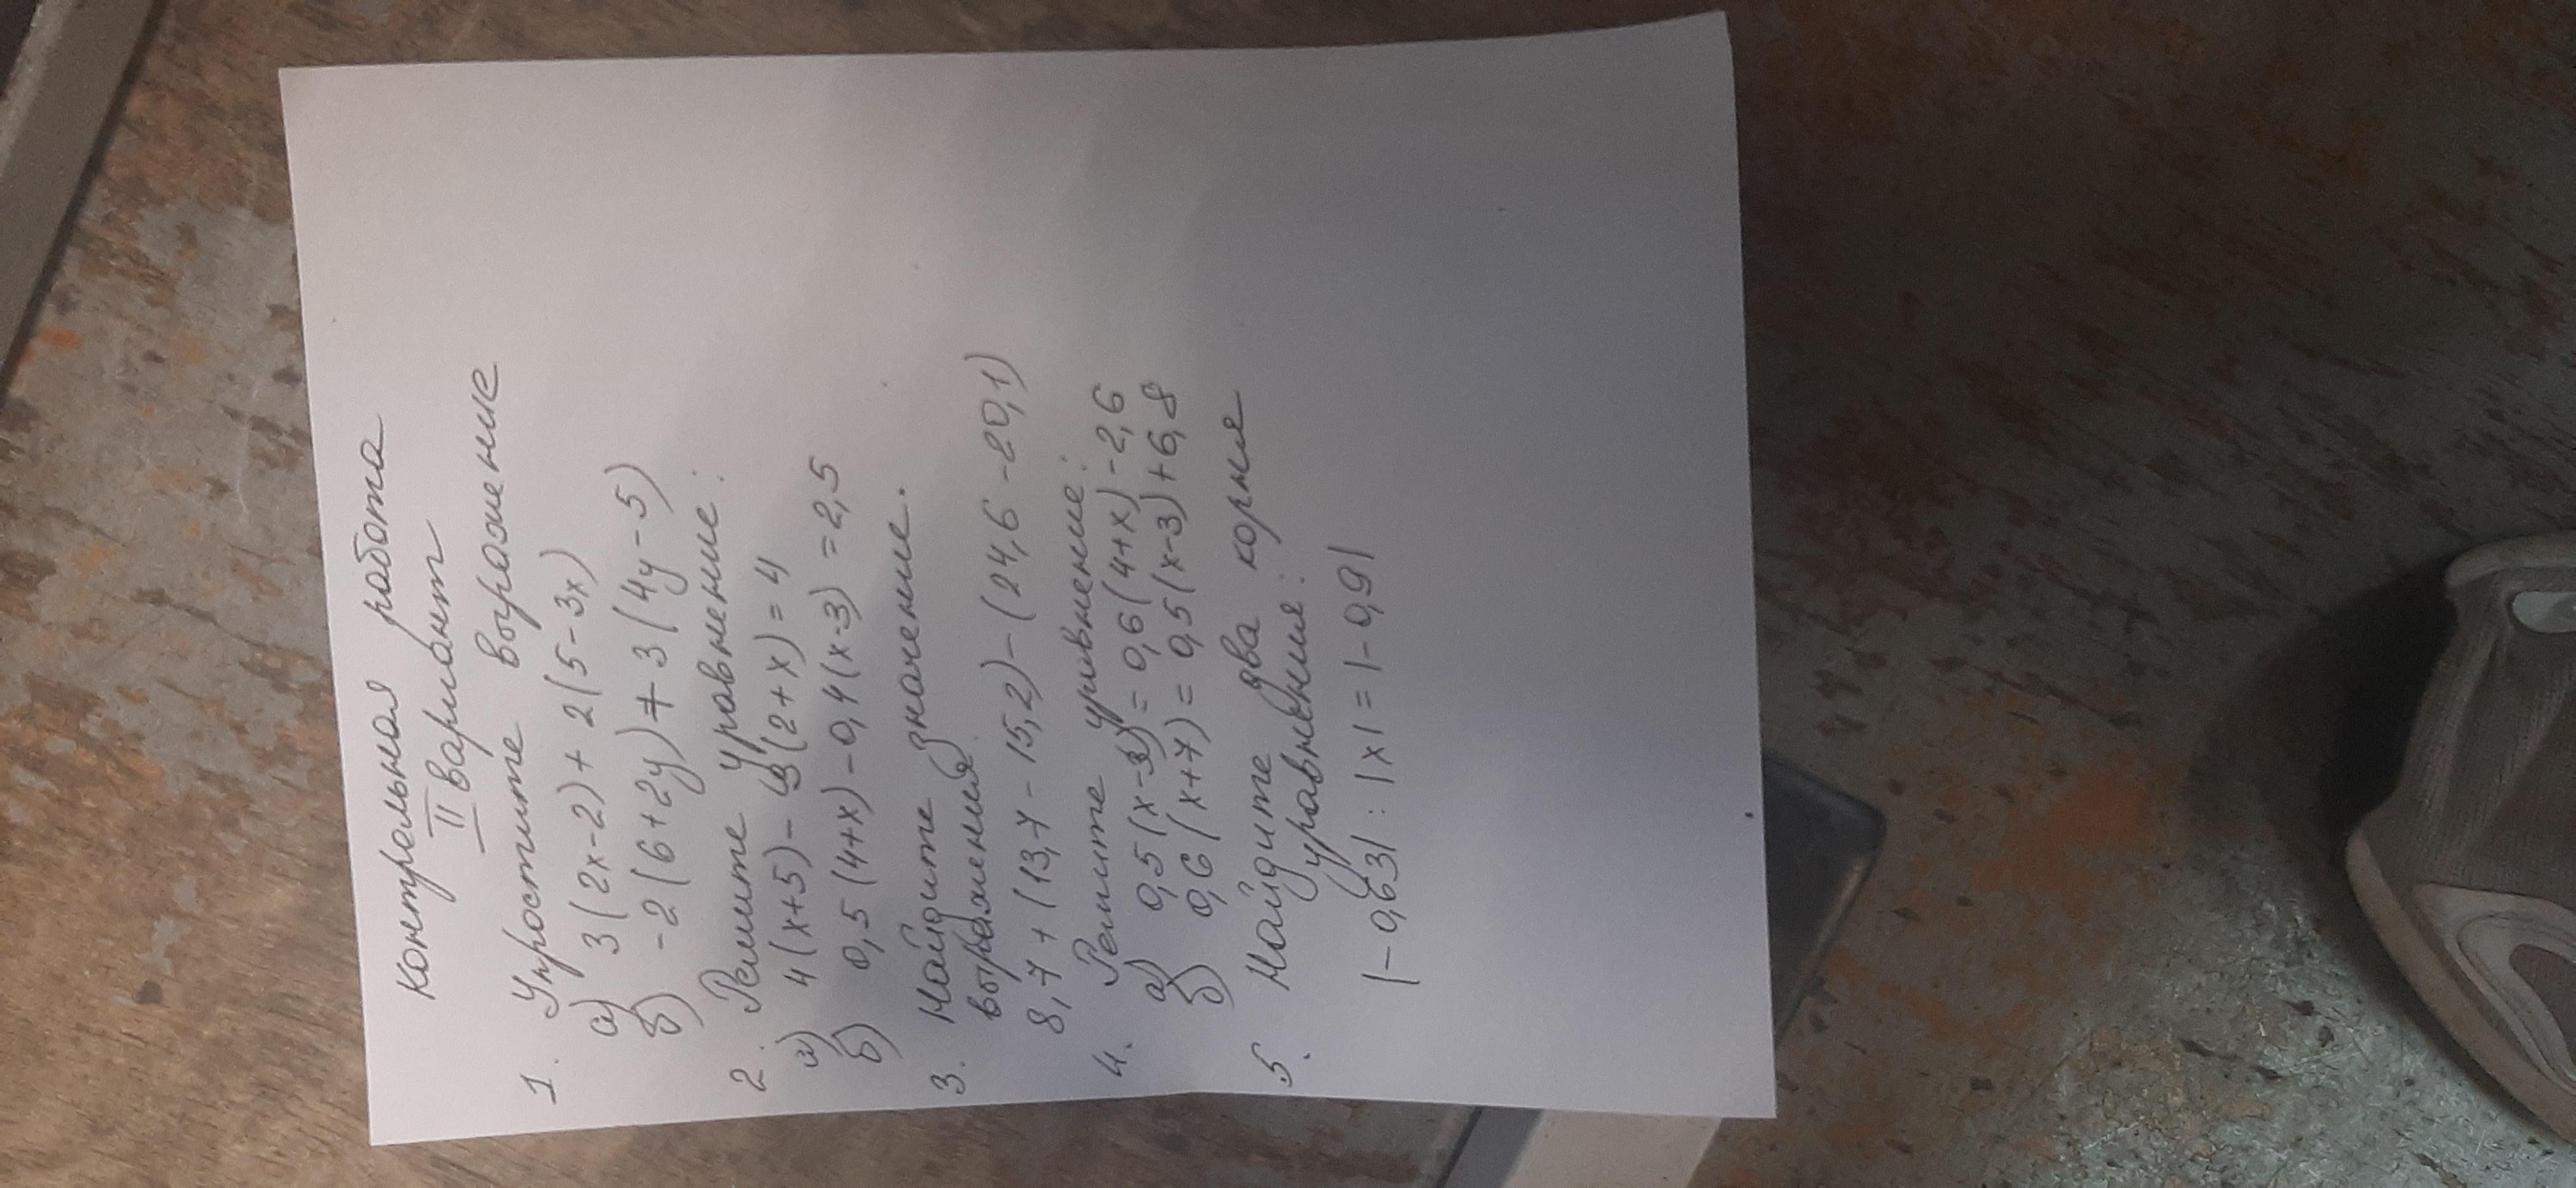 контрольная работа
II вариант
1. Упростите выражение
а) 3(2x-2)+2(5-3x)
б) -2(6+2y)+3(4y-5)
2. Решите уравнение:
а) 4(x+5)-3(2+x)=4
б) 0,5(4+x)-0,4(x-3)=2,5
3. Найдите значение.
выражения
8,7+(13,7-15,2)-(24,6-20,1)
4. Решите уравнение:
а) 0,5(x-3)=0,6(4+x)-2,6
б) 0,6(x+7)=0,5(x-3)+6,8
5. Найдите два корня
уравнения:
|-0,63|:|x|=|-0,9|